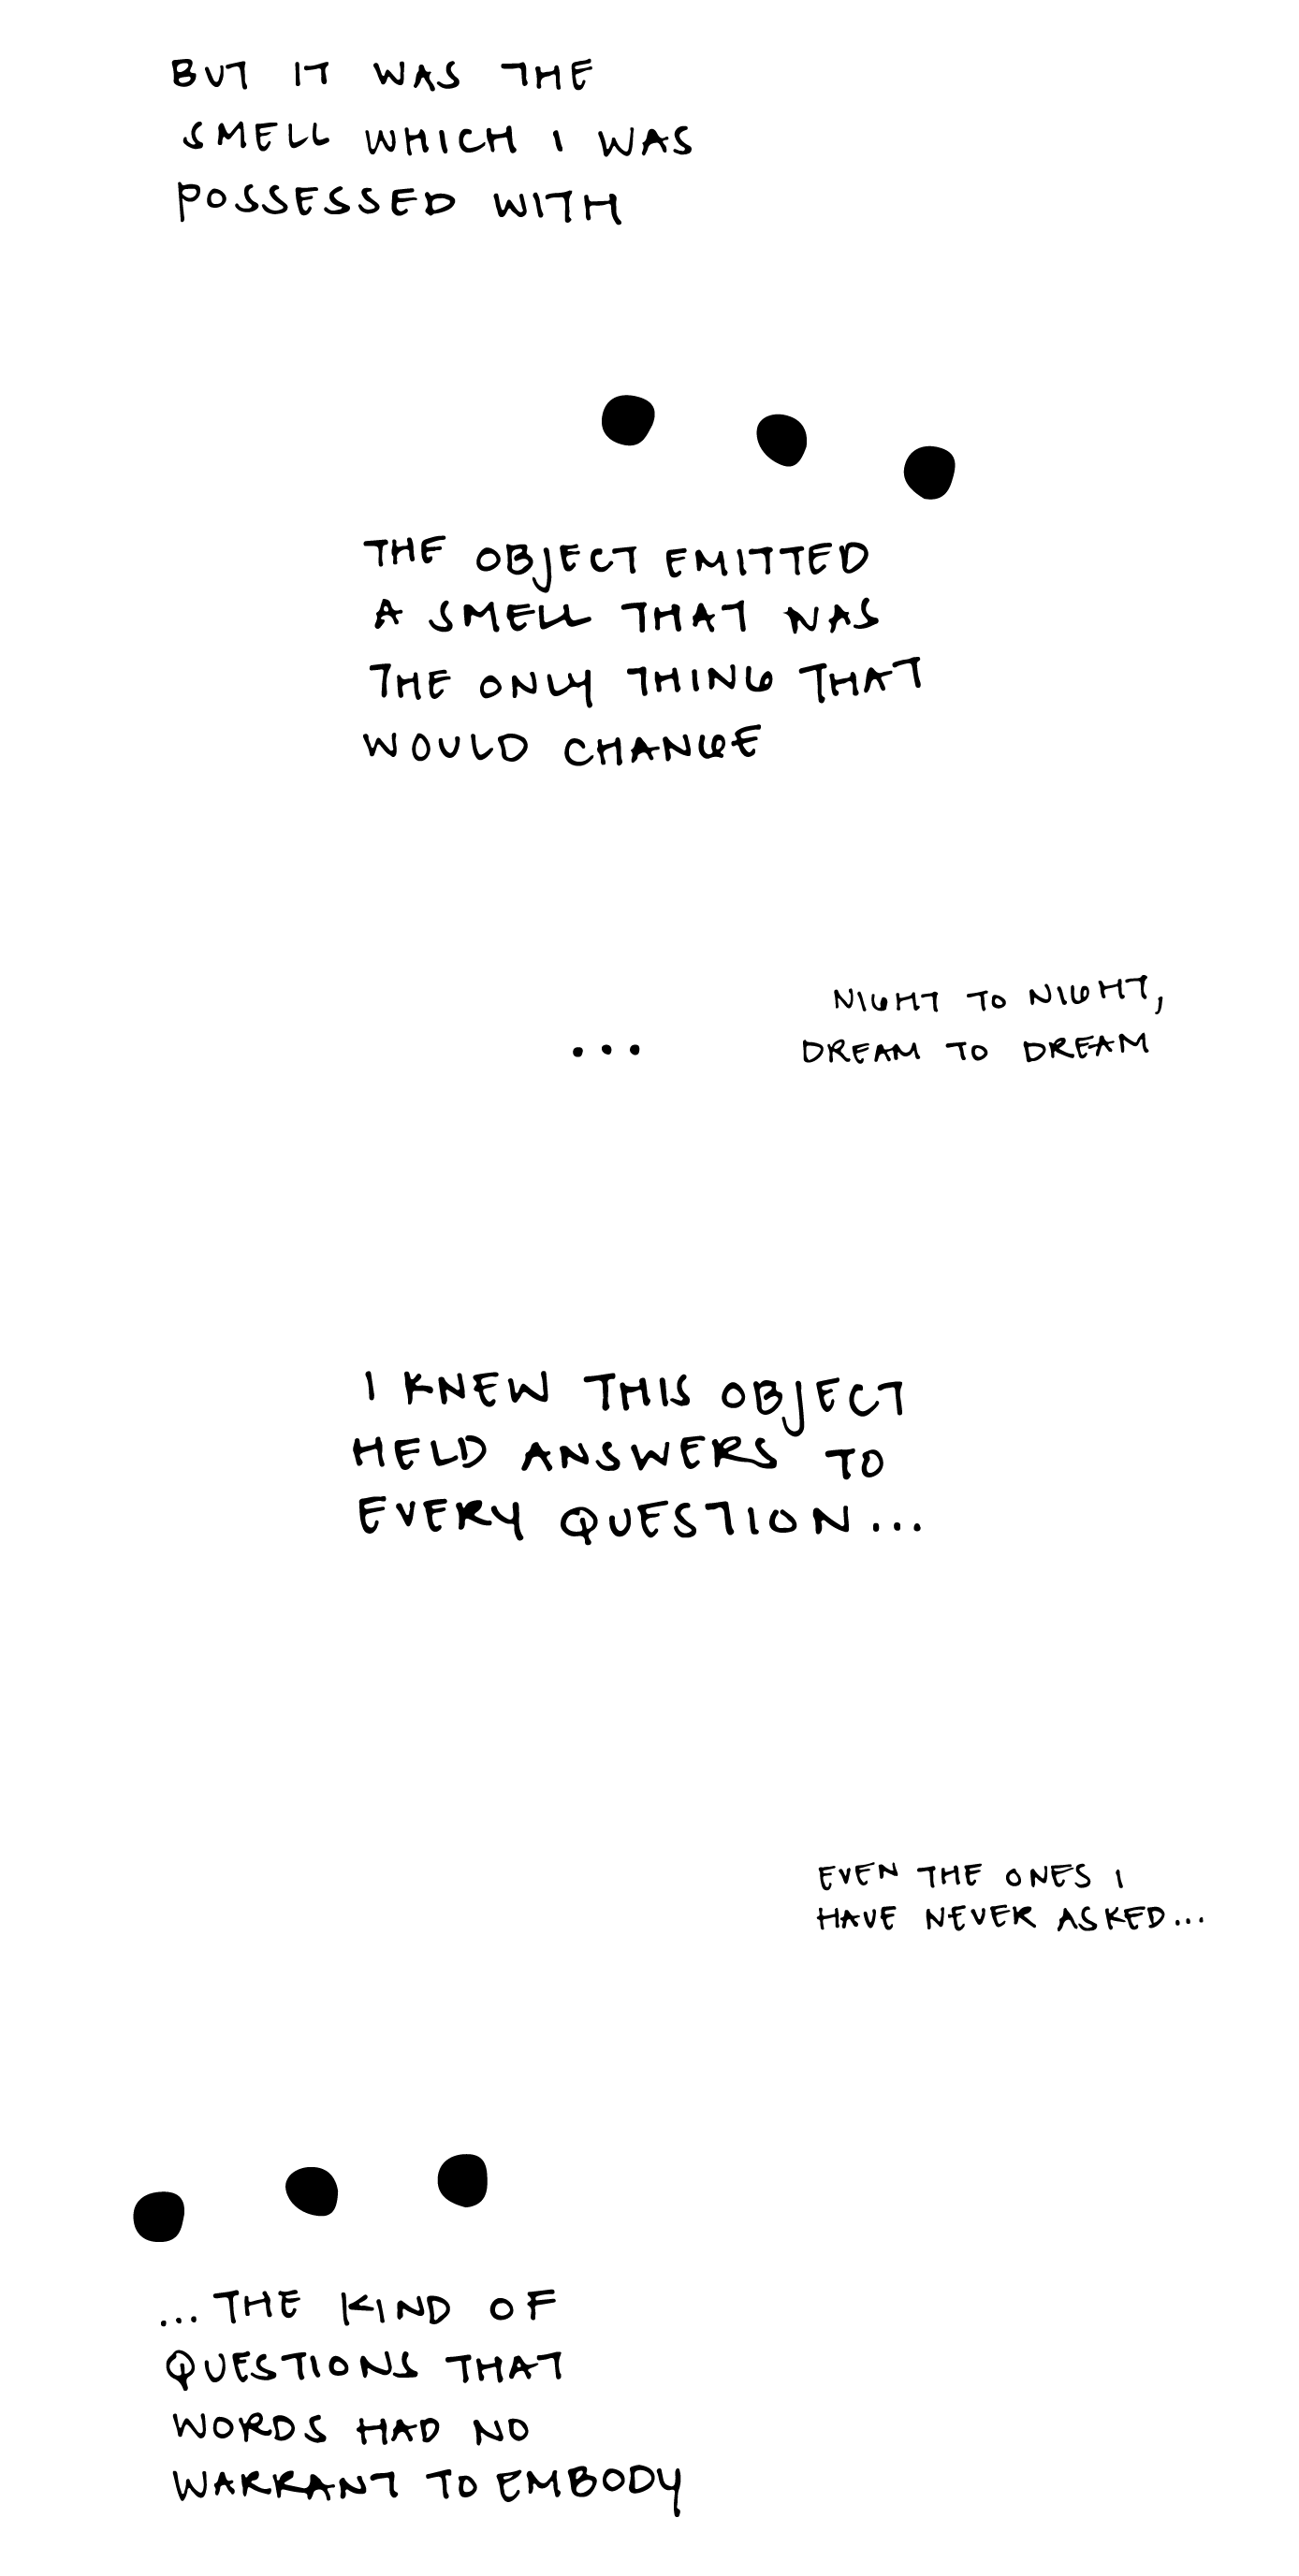 BUT IT WAS THE
SMELL WHICH I WAS
POSSESSED WITH
THE OBJECT EMITTED
A SMELL THAT WAS
THE ONLY THING THAT
WOULD CHANGE
...
NIGHT TO NIGHT,
DREAM TO DREAM
I KNEW THIS OBJECT
HELD ANSWERS TO
EVERY QUESTION...
EVEN THE ONES I
HAVE NEVER ASKED...
...THE KIND OF
QUESTIONS THAT
WORDS HAD NO
WARRANT TO EMBODY